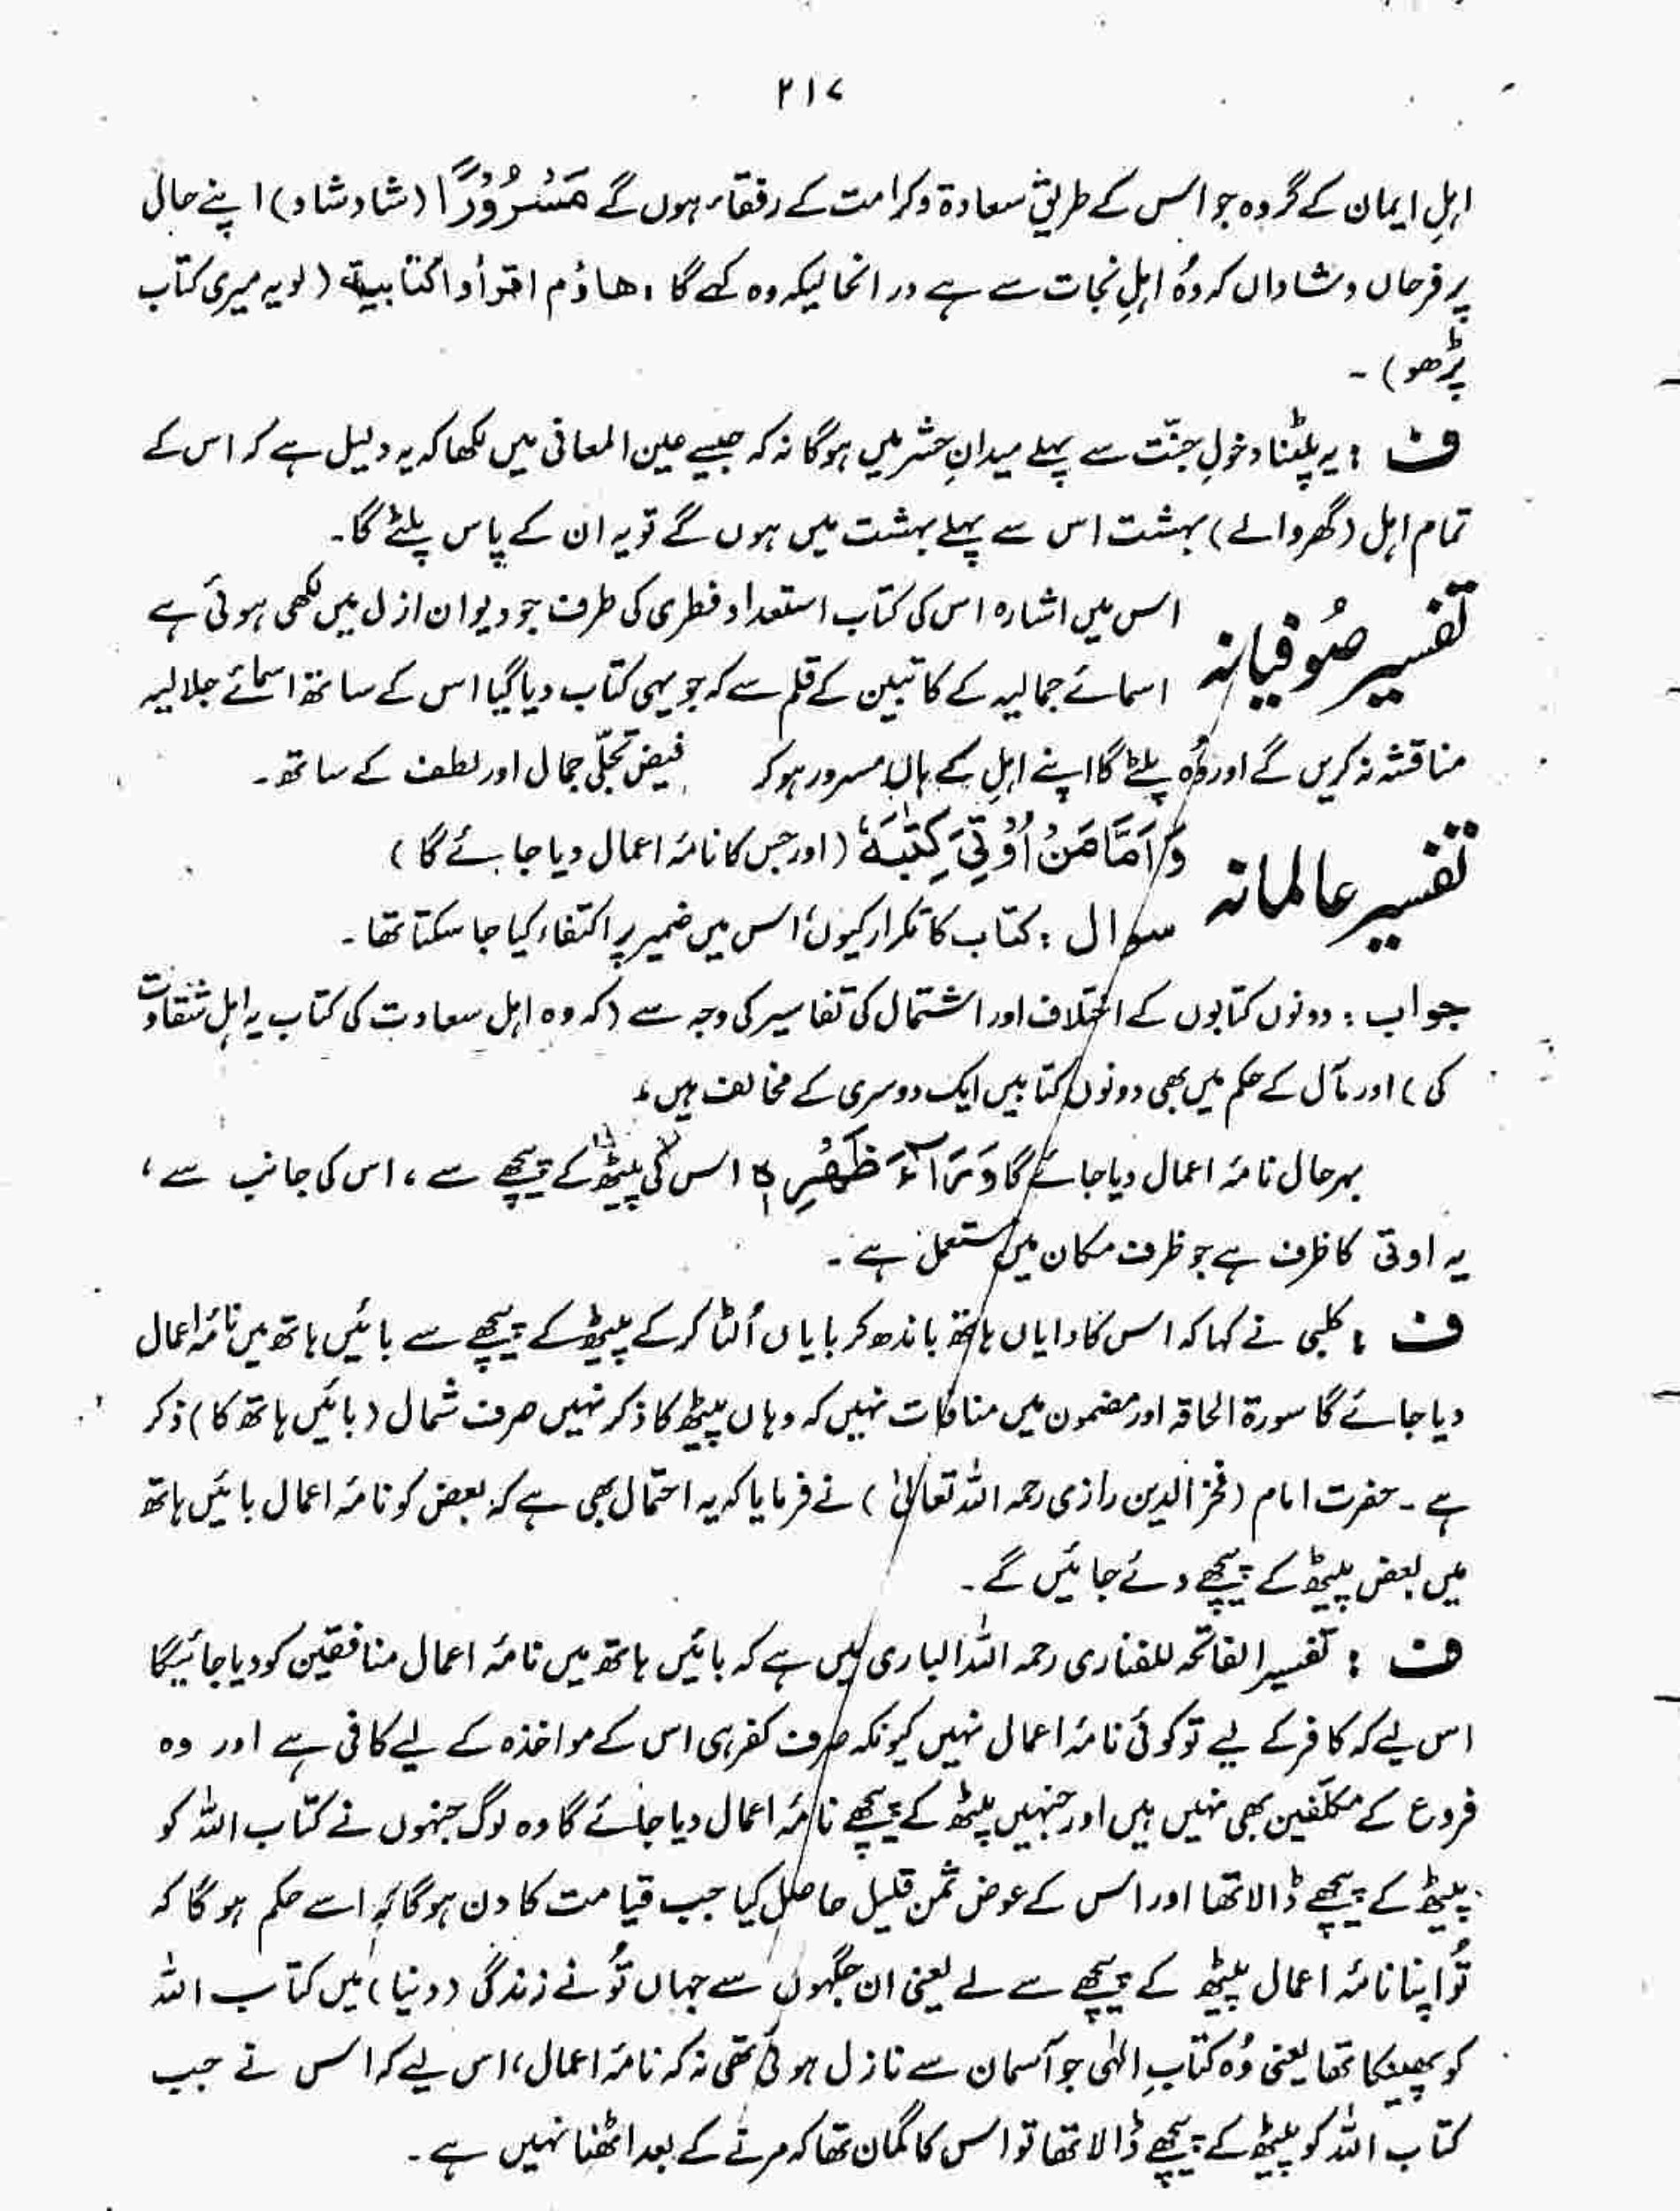 ۲۱۷
اہلِ ایمان کے گروہ جو اس کے طریقِ سعادۃ وکرامت کے رفقاء ہوں گے مَسْرُوْرًا (شاد شاد) اپنے حال
پر فرحاں و شاداں کہ وُہ اہلِ نجات سے ہے در انحالیکہ وہ کہے گا ، ھاؤم اقرأوا کتابیة (لو یہ میری کتاب
پڑھو) ۔
ف : یہ پلٹنا دخولِ جنّت سے پہلے میدانِ حشر میں ہوگا نہ کہ جیسے عین المعانی میں لکھا کہ یہ دلیل ہے کہ اس کے
تمام اہل (گھر والے) بہشت اس سے پہلے بہشت میں ہوں گے تو یہ ان کے پاس پلٹے گا۔
تفسیر صُوفیانہ اس میں اشارہ اس کی کتاب استعداد فطری کی طرف جو دیوان ازل میں لکھی ہوئی ہے
اسمائے جمالیہ کے کاتبین کے قلم سے کہ جو یہی کتاب دیا گیا اس کے ساتھ اسمائے جلالیہ
مناقشہ نہ کریں گے اور وُہ پلٹے گا اپنے اہل کے ہاں مسرور ہو کر فیض تجلّی جمال اور لطف کے ساتھ ۔
تفسیر عالمانہ وَاَمَّا مَنْ اُوْتِیَ کِتٰبَہٗ (اور جس کا نامۂ اعمال دیا جائے گا)
سوال : کتاب کا تکرار کیوں، اس میں ضمیر پر اکتفاء کیا جا سکتا تھا ۔
جواب : دونوں کتابوں کے اختلاف اور اشتمال کی تفاسیر کی وجہ سے (کہ وہ اہل سعادت کی کتاب یہ اہل شقاوت
کی) اور مآل کے حکم میں بھی دونوں کتابیں ایک دوسری کے مخالف ہیں ۔
بہرحال نامۂ اعمال دیا جائے گا وَرَآءَ ظَھْرِہٖ اس کی پیٹھ کے پیچھے سے ، اس کی جانب سے ،
یہ اوتی کا ظرف ہے جو ظرف مکان میں مستعمل ہے ۔
ف : کلبی نے کہا کہ اس کا دایاں ہاتھ باندھ کر بایاں اُلٹا کر کے پیٹھ کے پیچھے سے بائیں ہاتھ میں نامۂ اعمال
دیا جائے گا سورۃ الحاقہ اور مضمون میں منافات نہیں کہ وہاں پیٹھ کا ذکر نہیں صرف شمال (بائیں ہاتھ کا) ذکر
ہے ۔ حضرت امام (فخر الدین رازی رحمہ اللہ تعالیٰ) نے فرمایا کہ یہ احتمال بھی ہے کہ بعض کو نامۂ اعمال بائیں ہاتھ
میں بعض پیٹھ کے پیچھے دئے جائیں گے ۔
ف : تفسیر الفاتحہ للفناری رحمہ اللہ الباری میں ہے کہ بائیں ہاتھ میں نامۂ اعمال منافقین کو دیا جائیگا
اس لیے کہ کافر کے لیے تو کوئی نامۂ اعمال نہیں کیونکہ صرف کفر ہی اس کے مواخذہ کے لیے کافی ہے اور وہ
فروع کے مکلّفین بھی نہیں ہیں اور جنہیں پیٹھ کے پیچھے نامۂ اعمال دیا جائے گا وہ لوگ جنہوں نے کتاب اللہ کو
پیٹھ کے پیچھے ڈالا تھا اور اس کے عوض ثمن قلیل حاصل کیا جب قیامت کا دن ہوگا کہ اسے حکم ہو گا کہ
تُو اپنا نامۂ اعمال پیٹھ کے پیچھے سے لے یعنی ان جگہوں سے جہاں تُو نے زندگی (دنیا) میں کتاب اللہ
کو پھینکا تھا یعنی وُہ کتابِ الٰہی جو آسمان سے نازل ہوئی تھی نہ کہ نامۂ اعمال، اس لیے کہ اس نے جب
کتاب اللہ کو پیٹھ کے پیچھے ڈالا تھا تو اس کا گمان تھا کہ مرنے کے بعد اٹھنا نہیں ہے ۔